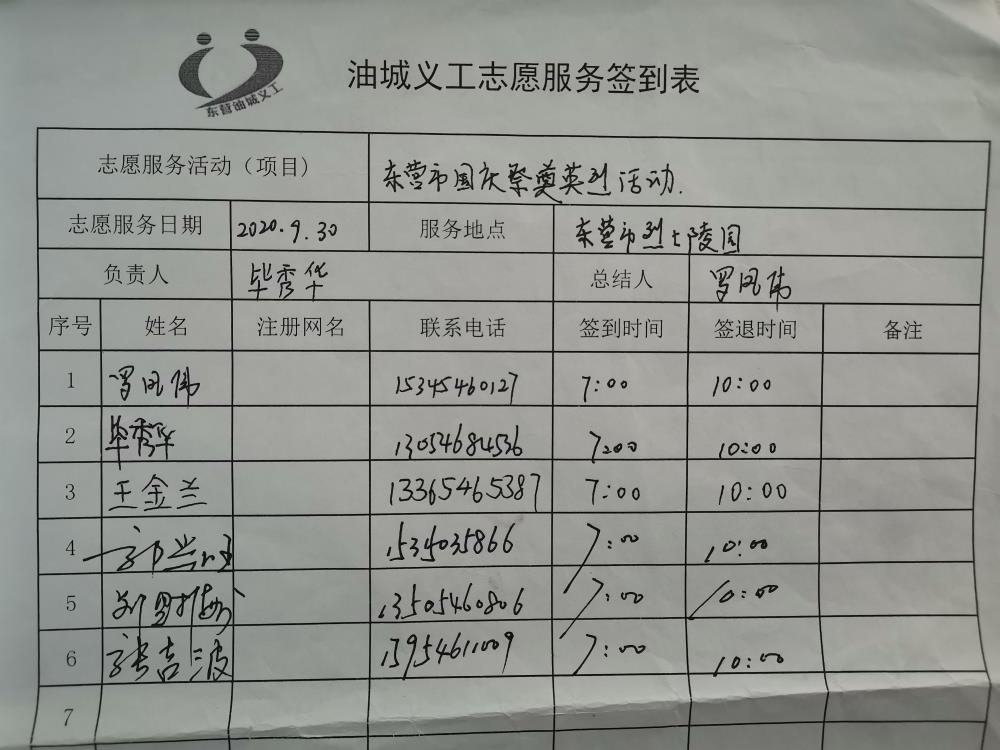 东营油城义工
油城义工志愿服务签到表
志愿服务活动（项目） 东营市国庆祭奠英烈活动.
志愿服务日期 2020.9.30 服务地点 东营市烈士陵园
负责人 毕秀华 总结人 罗凤伟
序号 姓名 注册网名 联系电话 签到时间 签退时间 备注
1 罗凤伟 15345460127 7:00 10:00
2 毕秀华 13054684536 7:00 10:00
3 王金兰 13365465387 7:00 10:00
4 7:00 10:00
5 13505460806 7:00 10:00
6 张吉波 13954611009 7:00 10:00
7